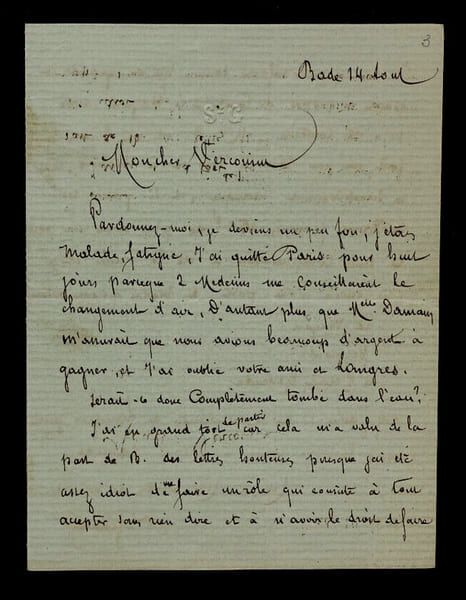 3
Bade 14 Aout
S-G
Mon cher Vercoutu
Pardonnez-moi, je deviens un peu fou, j'étais
malade, fatigué, J'ai quitté Paris pour huit
jours parceque 2 Medecins me Conseillaient le
changement d'air, D'autant plus que Melle Damain
m'assurait que nous avions beaucoup d'argent à
gagner, et J'ai oublié votre ami et Longres.
Serait-ce donc Complètement tombé dans l'eau?
J'ai eu grand tort de partir car cela m'a valu de la
part de B. des lettres honteuses presque j'ai été
assez idiot de me faire un rôle qui consiste à tout
accepter sans rien dire et à n'avoir le droit de faire